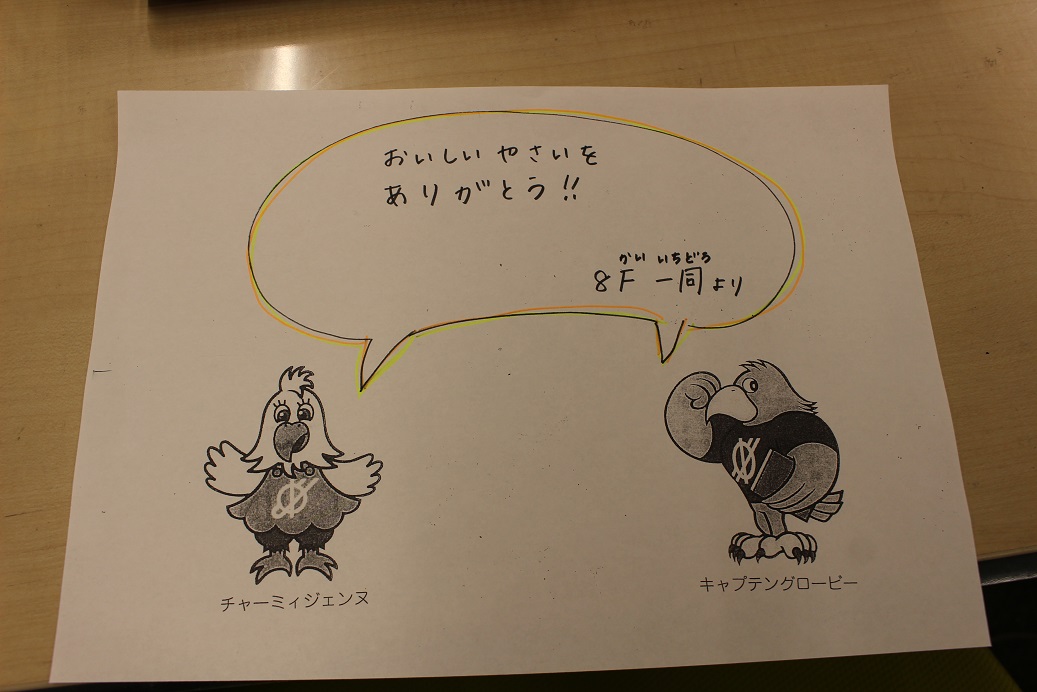 おいしいやさいを
ありがとう!!
かい いちどう
8F 一同より
チャーミィジェンヌ
キャプテングロービー